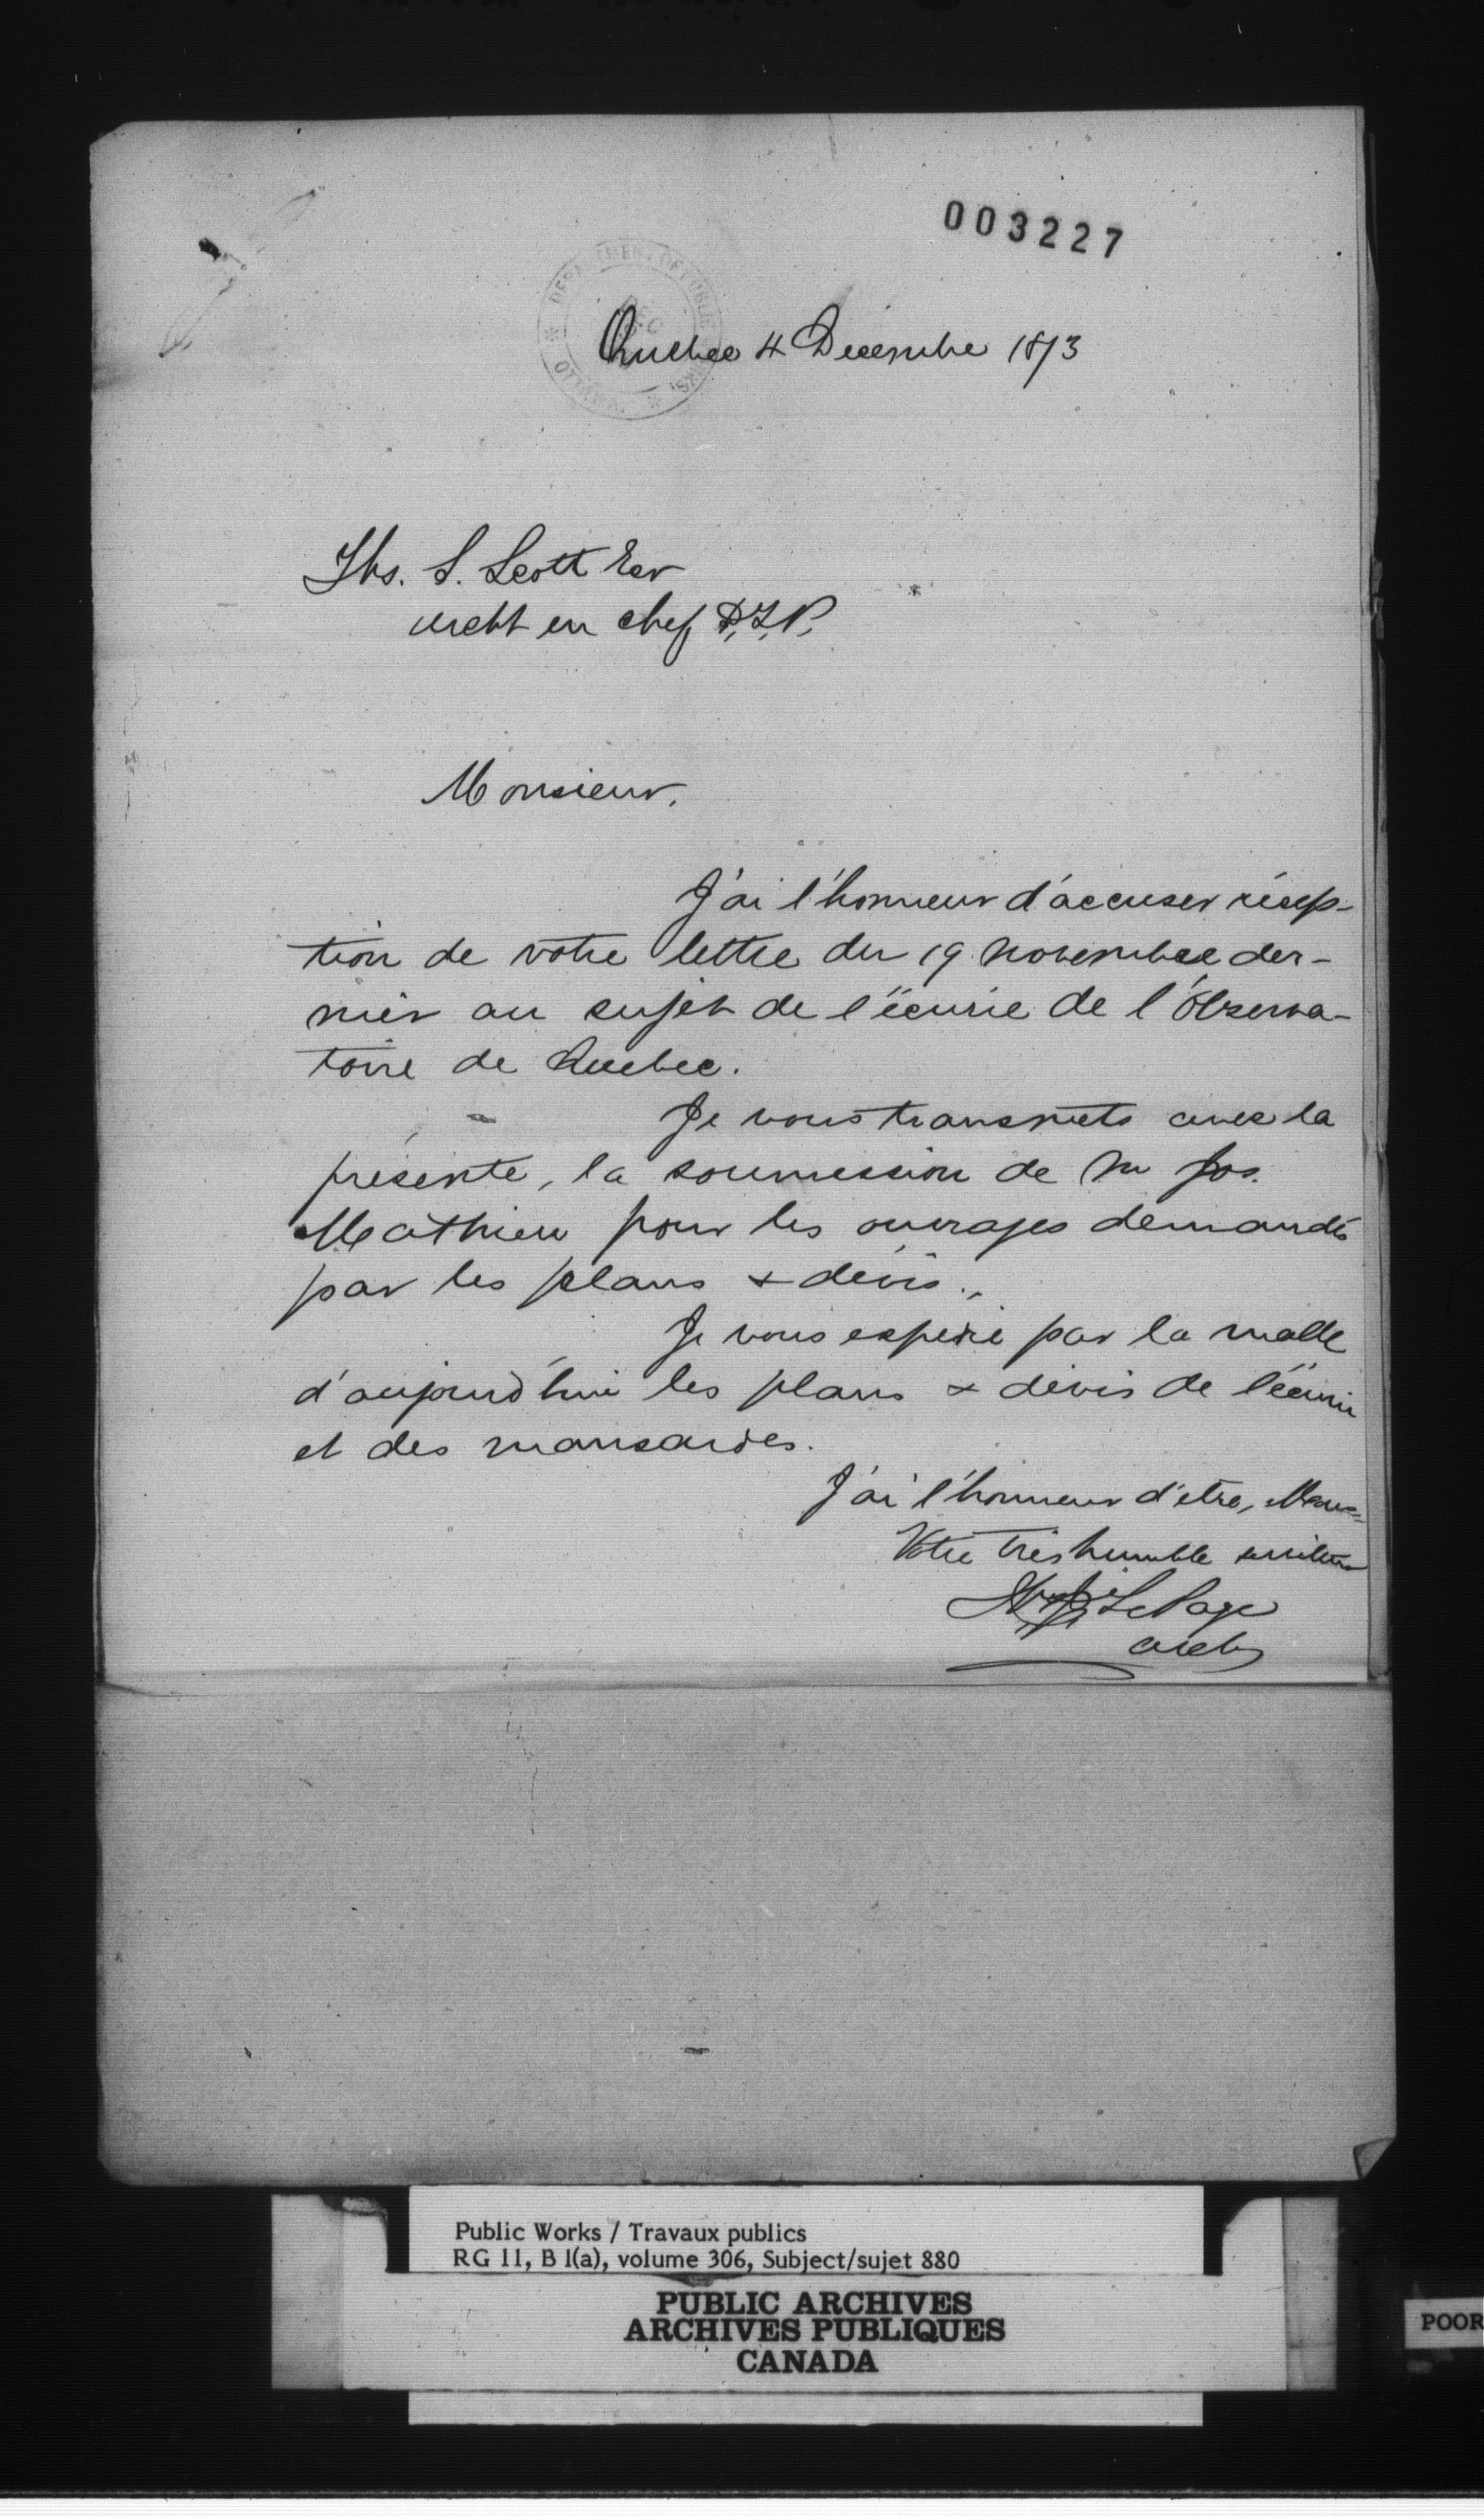 003227
DEPARTMENT OF PUBLIC WORKS, OTTAWA
DEC
Quebec 4 Decembre 1873
Ths. S. Scott Esr
archt en chef D.T.P.
Monsieur,
J'ai l'honneur d'accuser récep-
tion de votre lettre du 19 novembre der-
nier au sujet de l'écurie de l'Observa-
toire de Quebec.
Je vous transmets avec la
présente, la soumission de M Jos.
Mathieu pour les ouvrages demandés
par les plans & devis.
Je vous expédie par la malle
d'aujourd'hui les plans & devis de l'écurie
et des mansardes.
J'ai l'honneur d'etre,
Votre très humble serviteur
LePage
archt
Public Works / Travaux publics
RG 11, B 1(a), volume 306, Subject/sujet 880
PUBLIC ARCHIVES
ARCHIVES PUBLIQUES
CANADA
POOR